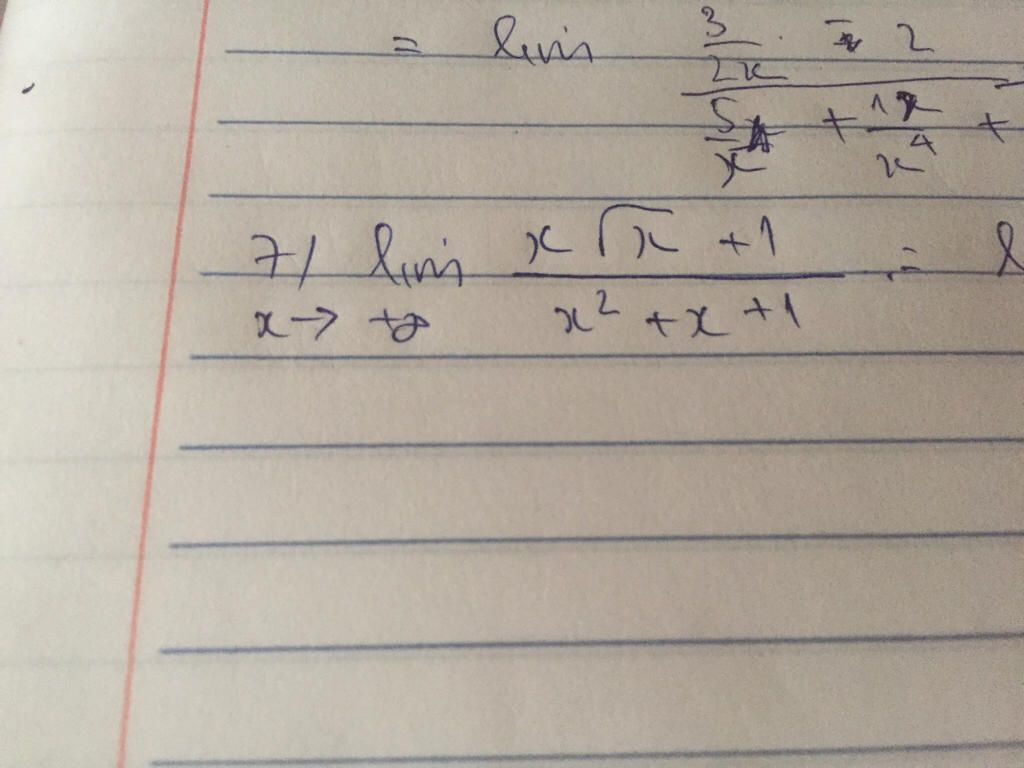 = lim 3/2x - 2
5/x + 1/x⁴ +
7/ lim x√x +1 / x² + x + 1 =
x → +∞